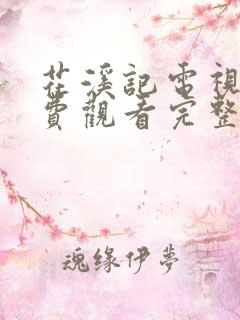 茌溪記電視
費觀看完整
魂缘伊夢